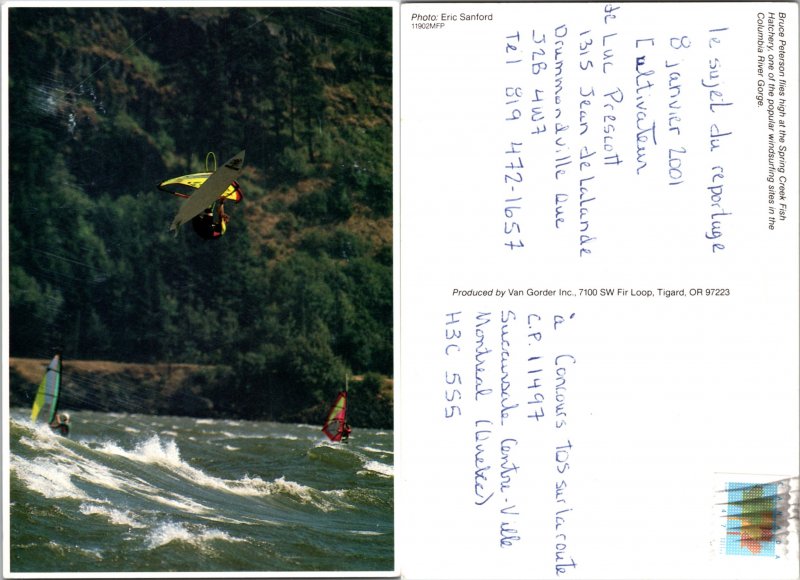 Photo: Eric Sanford
11902MFP
Bruce Peterson flies high at the Spring Creek Fish
Hatchery, one of the popular windsurfing sites in the
Columbia River Gorge.
le sujet du reportage
8 janvier 2001
Cultivateur
de Luc Prescott
1315 Jean de Lalande
Drummondville Que
J2B 4W7
Tél 819 472-1657
Produced by Van Gorder Inc., 7100 SW Fir Loop, Tigard, OR 97223
à Concours TQS sur la route
C.P. 11497
Succursale Centre-Ville
Montreal (Quebec)
H3C 5S5